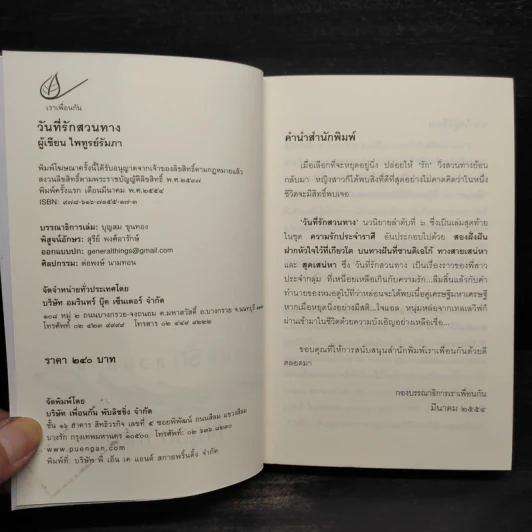 เราเพื่อนกัน
วันที่รักสวนทาง
ผู้เขียน ไพฑูรย์รัมภา
พิมพ์โฆษณาครั้งนี้ได้รับอนุญาตจากเจ้าของลิขสิทธิ์ตามกฎหมายแล้ว
สงวนลิขสิทธิ์ตามพระราชบัญญัติลิขสิทธิ์ พ.ศ.๒๕๓๗
พิมพ์ครั้งแรก เดือนมีนาคม พ.ศ.๒๕๕๔
บรรณาธิการเล่ม: บุญสม ขุนทอง
พิสูจน์อักษร: สุรีย์ พงศ์อารักษ์
ออกแบบปก: generalthings@gmail.com
ศิลปกรรม: ต่อพงษ์ นามทอน
จัดจำหน่ายทั่วประเทศโดย
บริษัท อมรินทร์ บุ๊ค เซ็นเตอร์ จำกัด
๑๐๘ หมู่ ๒ ถนนบางกรวย-จงถนอม ต.มหาสวัสดิ์ อ.บางกรวย จ.นนทบุรี
โทรศัพท์ ๐๒ ๔๒๓ ๙๙๙๙ โทรสาร ๐๒ ๔๔๙ ๙๒๒๒
ราคา ๒๔๐ บาท
จัดพิมพ์โดย
บริษัท เพื่อนกัน พับลิชชิ่ง จำกัด
ชั้น ๑๖ อาคาร สิทธิวรกิจ เลขที่ ๕ ซอยพิพัฒน์ ถนนสีลม แขวงสีลม
บางรัก กรุงเทพมหานคร ๑๐๕๐๐ โทรศัพท์ ๐๒
www.puengan.com
พิมพ์ที่: บริษัท พี เอ็น เค แอนด์ สกายพริ้นติ้งส์ จำกัด
คำนำสำนักพิมพ์
เมื่อเลือกที่จะหยุดอยู่นิ่ง ปล่อยให้ 'รัก' วิ่งสวนทางย้อน
กลับมา หญิงสาวก็ได้พบสิ่งที่ดีที่สุดอย่างไม่คาดคิดว่าในหนึ่ง
ชีวิตจะมีสิทธิ์พบเจอ
'วันที่รักสวนทาง' นวนิยายลำดับที่ ๖ ซึ่งเป็นเล่มสุดท้าย
ในชุด ความรักประจำราศี อันประกอบไปด้วย สองฝั่งฝัน
ฝากหัวใจไว้ที่เกียวโต บนทางฝันที่ซานดิเอโก้ ทางสายเสน่หา
และ สุดเสน่หา ซึ่ง วันที่รักสวนทาง เป็นเรื่องราวของพี่สาว
ประจำกลุ่ม ที่เหนื่อยเหลือเกินกับความรัก...ลืมสิ้นแล้วกับคำ
ทำนายของหมอดูไปที่ว่าหล่อนจะได้พบเนื้อคู่เศรษฐีมหาเศรษฐี
หากเมื่อหยุดนิ่งอย่างมีสติ...โจแอล หนุ่มหล่อจากเทลอาวีฟก็
ผ่านเข้ามาในชีวิตด้วยความบังเอิญอย่างเหลือเชื่อ...
ขอบคุณที่ให้การสนับสนุนสำนักพิมพ์เราเพื่อนกันด้วยดี
ตลอดมา
กองบรรณาธิการเราเพื่อนกัน
มีนาคม ๒๕๕๔